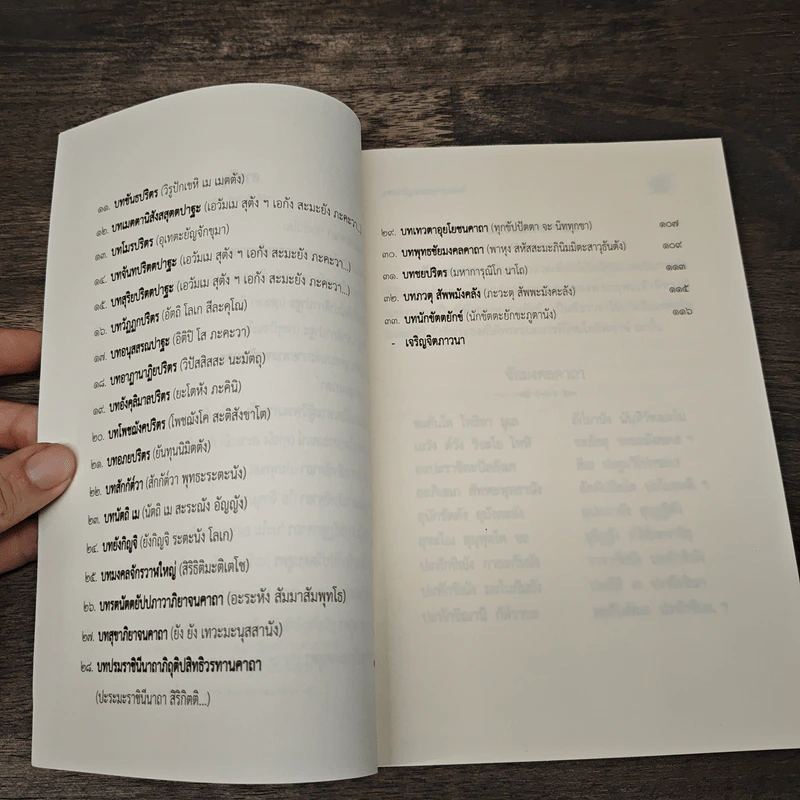 ๑๑. บทขันธปริตร (วิรูปักเขหิ เม เมตตัง)
๑๒. บทเมตตานิสังสสุตตปาฐะ (เอวัมเม สุตัง ฯ เอกัง สะมะยัง ภะคะวา...)
๑๓. บทโมรปริตร (อุเทตะยัญจักขุมา)
๑๔. บทจันทปริตตปาฐะ (เอวัมเม สุตัง ฯ เอกัง สะมะยัง ภะคะวา...)
๑๕. บทสุริยปริตตปาฐะ (เอวัมเม สุตัง ฯ เอกัง สะมะยัง ภะคะวา...)
๑๖. บทวัฏฏกปริตร (อัตถิ โลเก สีละคุโณ)
๑๗. บทอนุสสรณปาฐะ (อิติปิ โส ภะคะวา)
๑๘. บทอาฏานาฏิยปริตร (วิปัสสิสสะ นะมัตถุ)
๑๙. บทอังคุลิมาลปริตร (ยะโตหัง ภะคินิ)
๒๐. บทโพชฌังคปริตร (โพชฌังโค สะติสังขาโต)
๒๑. บทอภยปริตร (ยันทุนนิมิตตัง)
๒๒. บทสักกัต์วา (สักกัต์วา พุทธะระตะนัง)
๒๓. บทนัตถิ เม (นัตถิ เม สะระณัง อัญญัง)
๒๔. บทยังกิญจิ (ยังกิญจิ ระตะนัง โลเก)
๒๕. บทมงคลจักรวาฬใหญ่ (สิริธิติมะติเตโช)
๒๖. บทรตนัตตยัปปภาวาภิยาจนคาถา (อะระหัง สัมมาสัมพุทโธ)
๒๗. บทสุขาภิยาจนคาถา (ยัง ยัง เทวะมะนุสสานัง)
๒๘. บทปรมราชินีนาถาภิถุติปสิทธิวรทานคาถา
(ปะระมะราชินีนาถา สิริกิตติ...)
๒๙. บทเทวตาอุยโยชนคาถา (ทุกขัปปัตตา จะ นิททุกขา) ๑๐๗
๓๐. บทพุทธชัยมงคลคาถา (พาหุง สหัสสะมะภินิมมิตะสาวุธันตัง) ๑๐๙
๓๑. บทชยปริตร (มหาการุณิโก นาโถ) ๑๑๓
๓๒. บทภวตุ สัพพมังคลัง (ภะวะตุ สัพพะมังคะลัง) ๑๑๕
๓๓. บทนักขัตตยักข์ (นักขัตตะยักขะภูตานัง) ๑๑๖
- เจริญจิตภาวนา